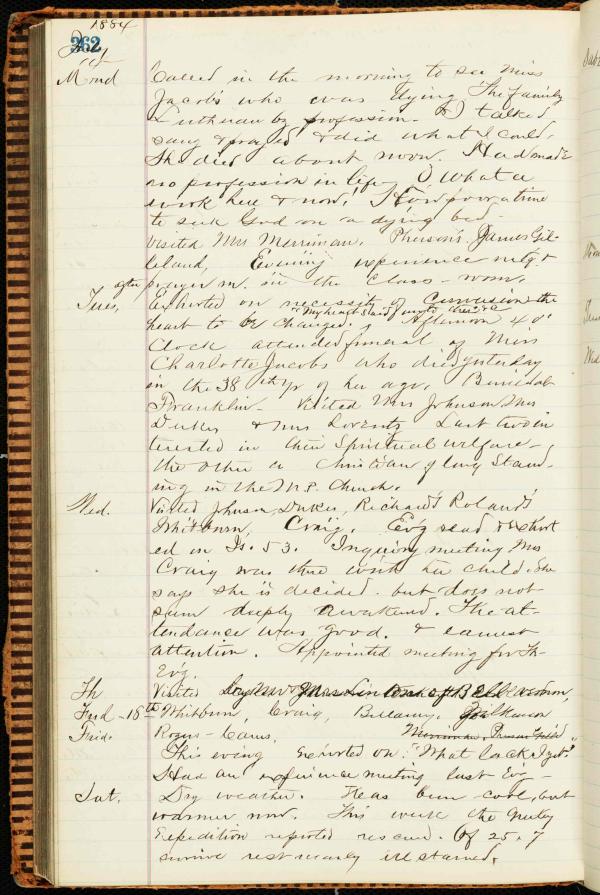 1884
262
July
Mond Called in the morning to see Miss
Jacobs who was dying The family
Lutheran by profession. I talked,
sang & prayed & did what I could.
She died about noon. Had made
no profession in life O what a
work here & now! How poor a time
to seek God on a dying bed-
Visited Mrs Merriman, Pherson's James Gil-
leland, Evening experience mtg &
after prayer m. in the class room.
Tues, Exhorted on necessity of Conversion the
"My heart said unto thee" &c
heart to be changed. Afternoon 4 o'
Clock attended funeral of Miss
Charlotte Jacobs who died yesterday
in the 38th yr of her age. Buried at
Franklin- Visited Mrs Johnson Mrs
Dukes & Mrs Lorentz Last two in
terested in their Spiritual welfare-
the other a Christian of long Stand-
ing in the M.P. Church.
Wed. Visited Jhnson, Dukes, Richard's Roland's
Whitburn, Craig. Ev'g read & exhort
ed on Is. 53. Inquiry meeting Mrs
Craig was there with her child. She
says she is decided but does not
seem deeply awakened. The at-
tendance was good. & earnest
attention. Appointed meeting for Th-
Ev'g.
Th Visited
18th Whitburn, Craig, Bellamy, Wilkinson
Frid. Rogers
This evening exhorted on "What lack I yet."
Had an experience meeting last Ev'g-
Sat. Dry weather. Has been cool, but
warmer now. This week the Greely
Expedition reported rescued. Of 25, 7
survive rest nearly all starved.